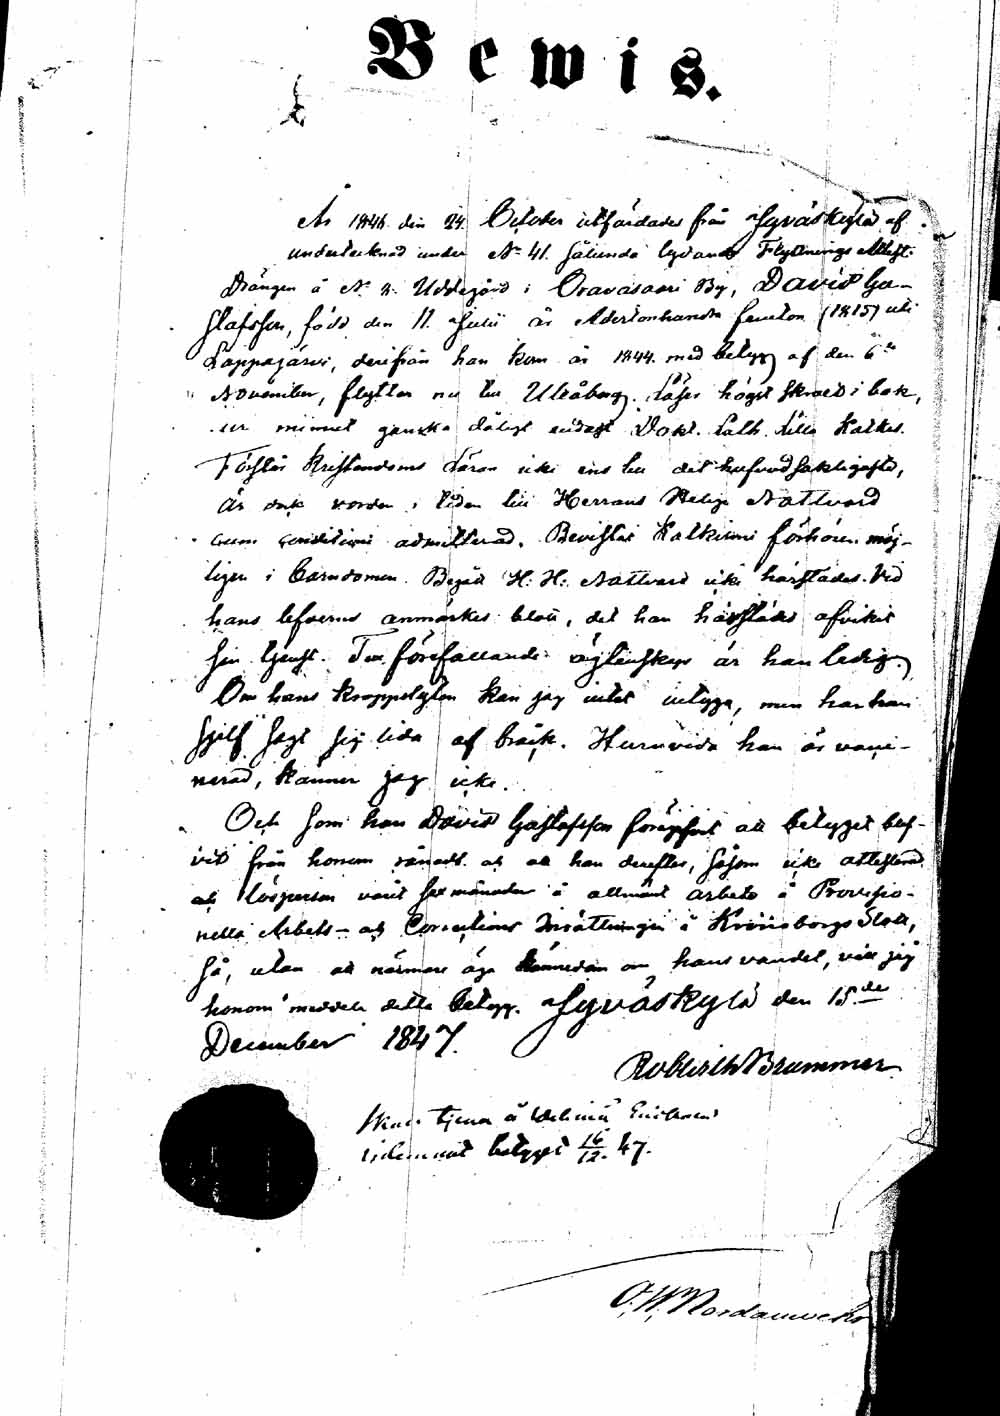 Bewis.
År 1846 den 24 October utfärdades från Jyväskylä af
undertecknad under No 41. sålunda lydande Flyttnings Attest:
Drängen å No 2. Uddegård i Oravasaari By, David Gu-
stafsson, född den 11 Julii år Adertonhundra femton (1815) uti
Lappajärvi, derifrån han kom år 1844. med betyg af den 6te
November, flyttar nu till Uleåborg. Läser högst skralt i bok,
ur minnet ganska dåligt endast Dokt. Luth. Lilla Katkes.
Förstår Kristendoms Läran icke ens till det hufvudsakligaste,
Är dock vorden i tiden till Herrans Heliga Nattvard
cum conditioni admitterad. Bevistat Katkismi förhören möj-
ligen i barndomen. Begått H. H. Nattvard icke härstädes. Vid
hans lefverne anmärkes blott, det han härstädes afvikit
sin tjenst. Till förefallande ägtenskap är han ledig.
Om hans kroppslyten kan jag intet intyga, men har han
sjelf sagt sig lida af bråck. Huruvida han är vacci-
nerad, känner jag icke.
Och som han David Gustafsson föregifvit att betyget blif-
vit från honom rånadt och att han derefter, såsom icke attesterad
och lösperson varit sex månader å allmänt arbete å Provisio-
nella Arbets- och Corrections Inrättningen å Kronoborgs Slott,
så, utan att närmare äga kännedom om hans vandel, vill jag
honom meddela detta betyg. Jyväskylä den 15de
December 1847.
Robert Brummer
tjena å
betyget 16/12. 47.
O. W. Nordanwall